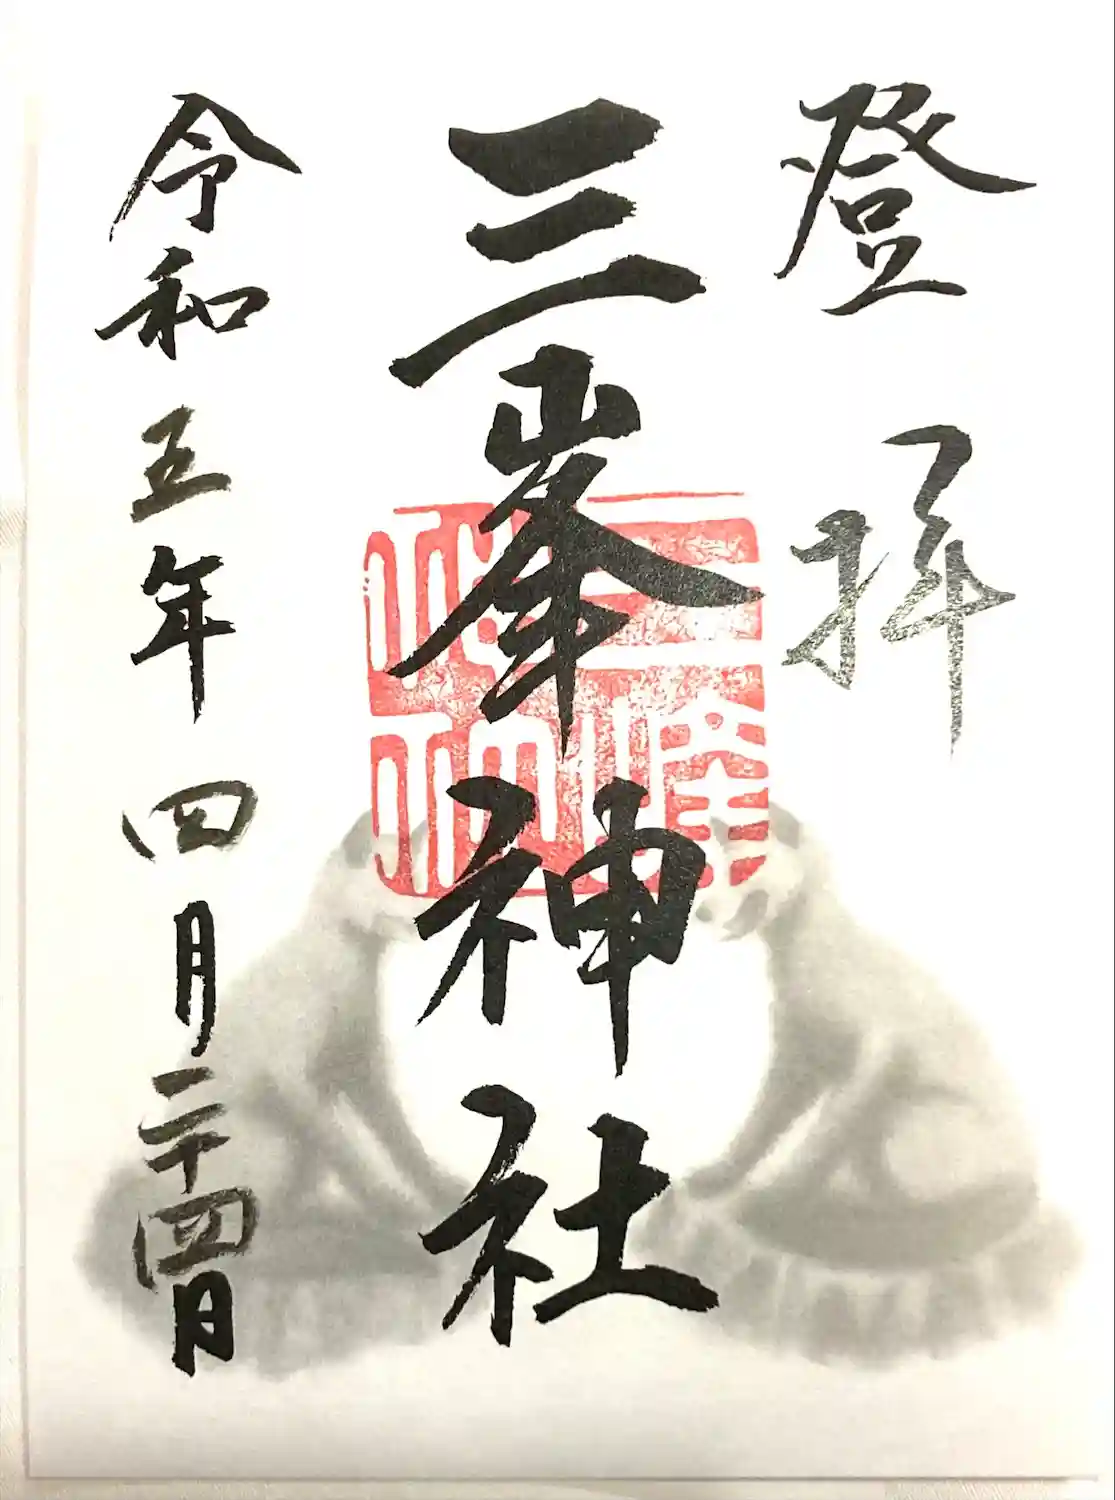 登拝
三峯神社
令和五年四月二十四日
三峯神社